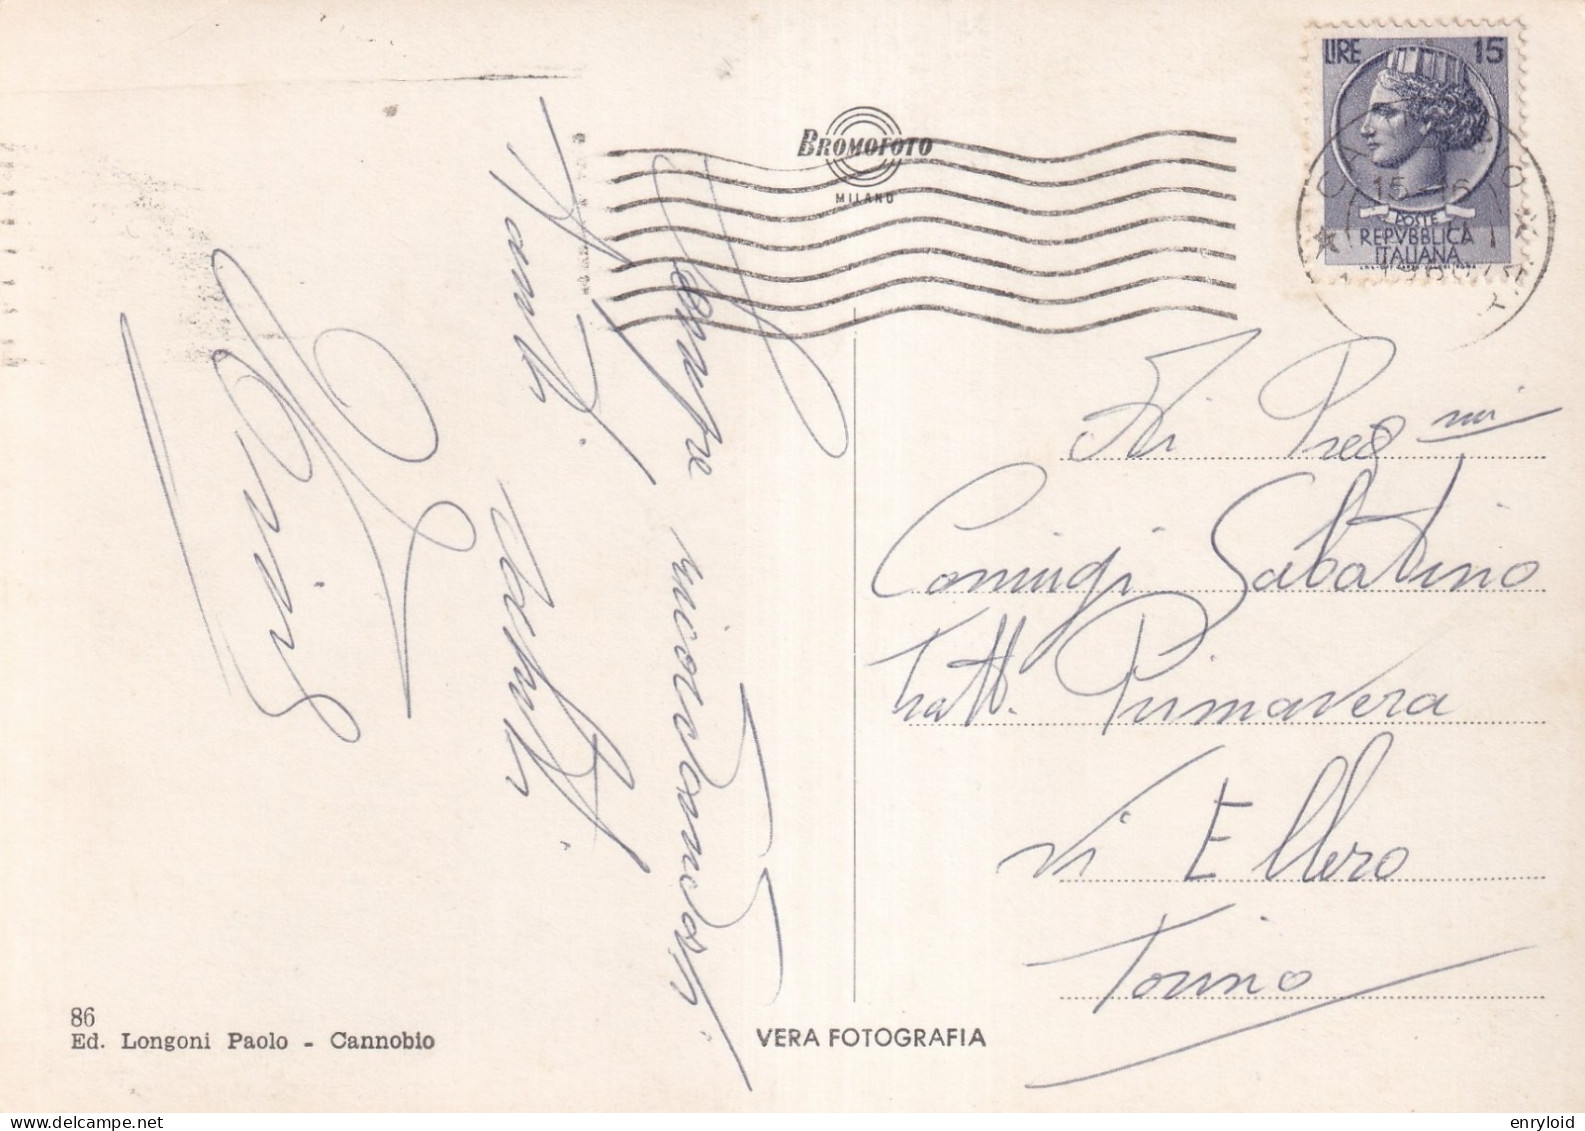 LIRE 15
POSTE
REPVBBLICA
ITALIANA
BROMOFOTO
MILANO
Sempre ricordandoVi
Tanti saluti
Ai Preg mi
Coniugi Sabatino
Tratt. Primavera
Vi Ellero
Torino
86
Ed. Longoni Paolo - Cannobio
VERA FOTOGRAFIA
enryloid